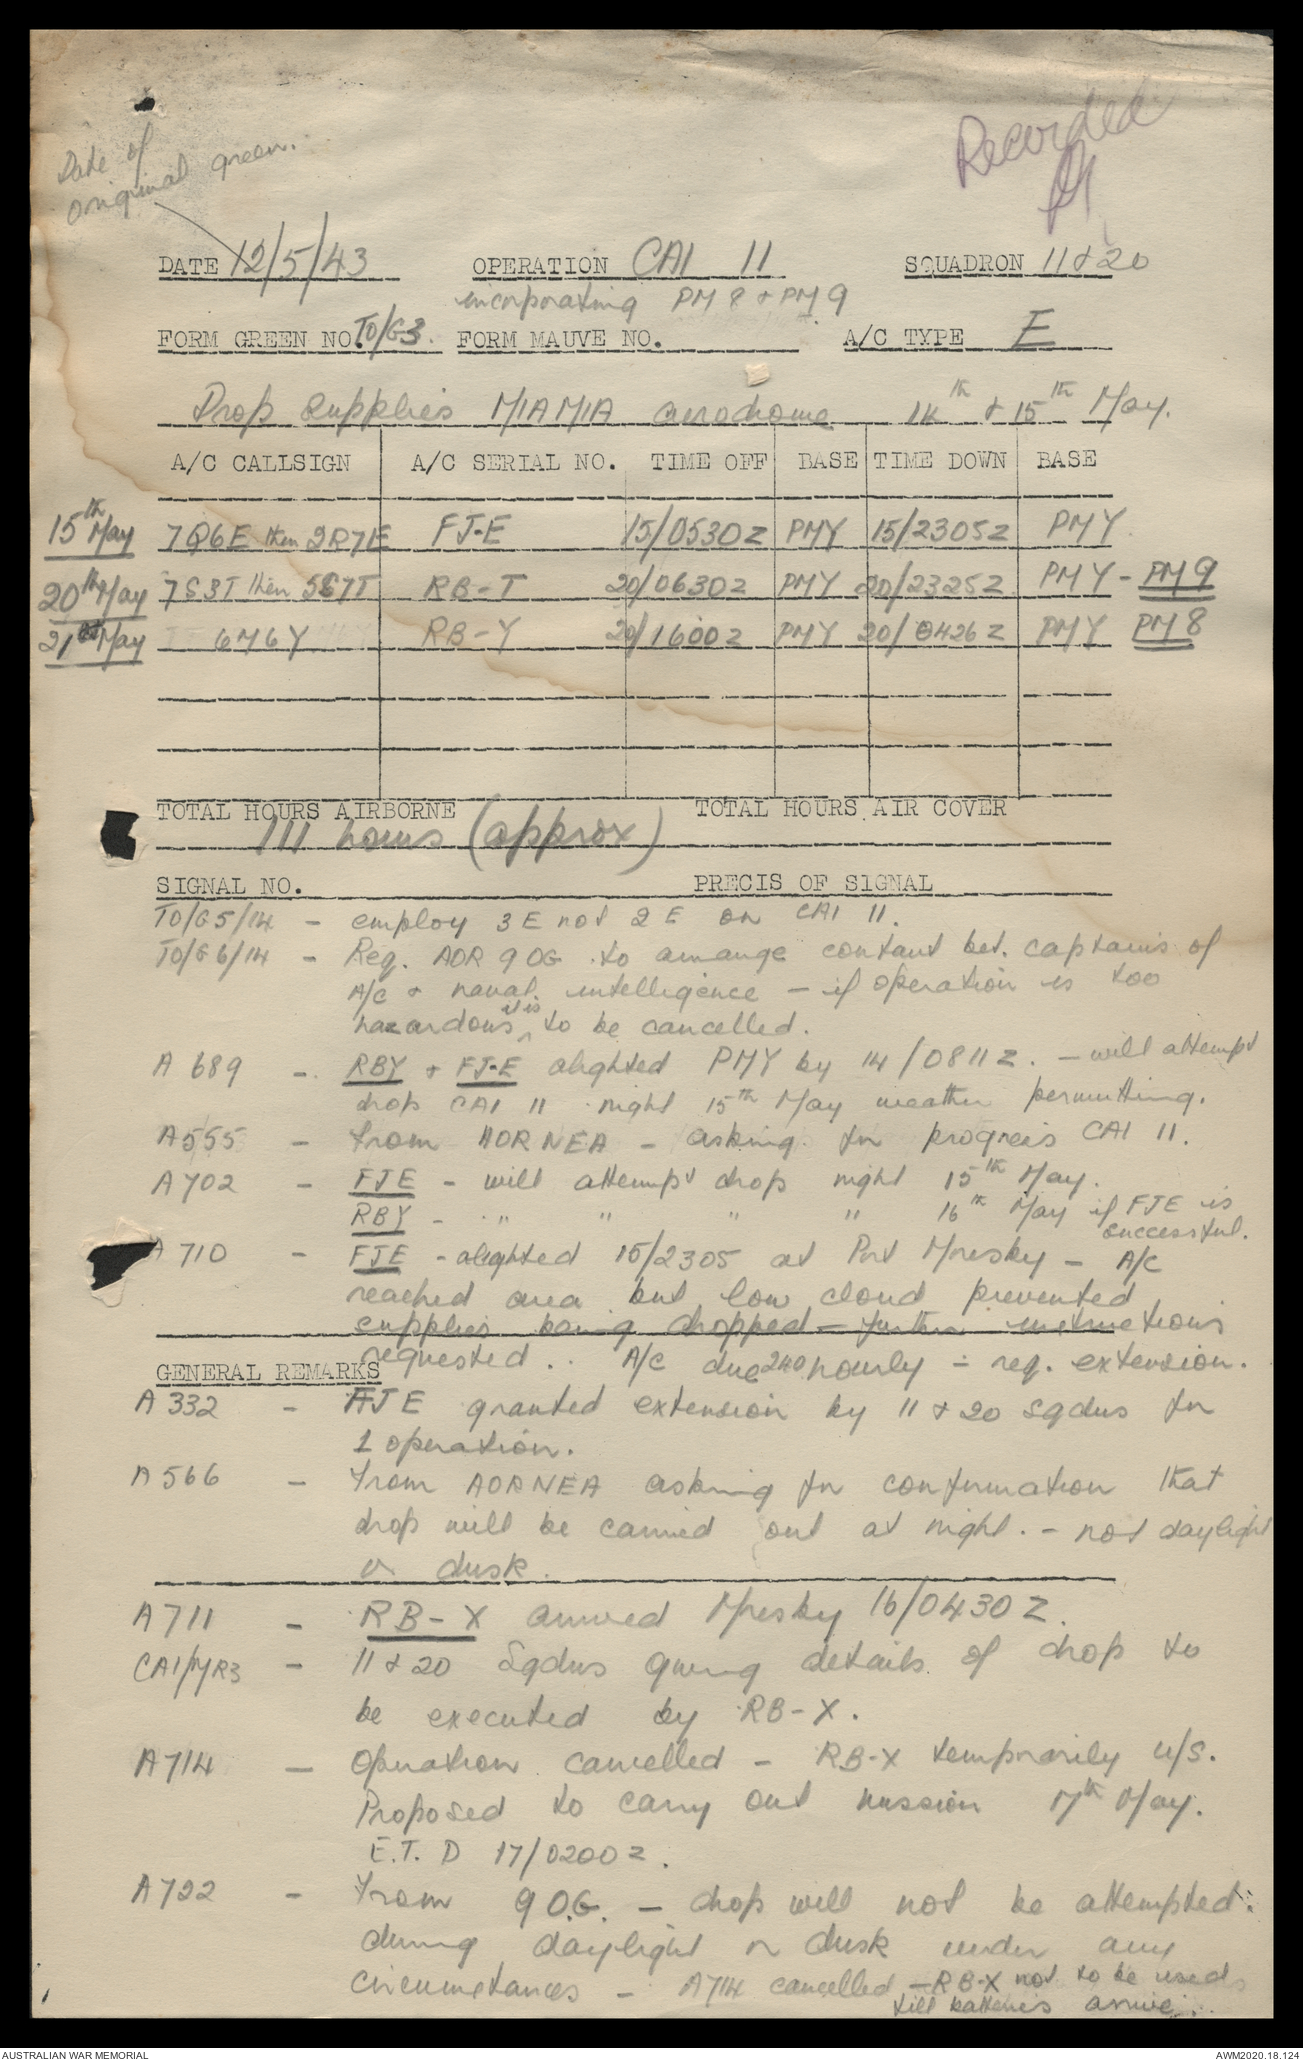 Date of
original green.
Recorded
DATE 12/5/43 OPERATION CAI 11 SQUADRON 11 & 20
incorporating PM 8 & PM 9
FORM GREEN NO. TO/G3. FORM MAUVE NO. A/C TYPE E
Drop supplies MIAMIA aerodrome 14th & 15th May.
A/C CALLSIGN A/C SERIAL NO. TIME OFF BASE TIME DOWN BASE
15th May 7Q6E then 2R7E FJ-E 15/0530Z PMY 15/2305Z PMY
20th May 7S3T then 5S7T RB-T 20/0630Z PMY 20/2325Z PMY - PM9
21st May 6M6Y RB-Y 20/1600Z PMY 20/0426Z PMY PM8
TOTAL HOURS AIRBORNE TOTAL HOURS AIR COVER
111 hours (approx)
SIGNAL NO. PRECIS OF SIGNAL
TO/G5/14 - employ 3 E not 2 E on CAI 11.
TO/G6/14 - Req. AOR 9 OG to arrange contact bet. captains of
A/C & naval intelligence - if operation is too
hazardous it is to be cancelled.
A 689 - RBY & FJ-E alighted PMY by 14/0811Z. - will attempt
drop CAI 11 night 15th May weather permitting.
A555 - from AORNEA - asking for progress CAI 11.
A702 - FJE - will attempt drop night 15th May.
RBY - " " " " 16th May if FJE is
successful.
A 710 - FJE - alighted 15/2305 at Port Moresby - A/C
reached area but low cloud prevented
supplies being dropped - further instructions
requested.. A/C due 240 hourly - req. extension.
GENERAL REMARKS
A 332 - FJE granted extension by 11 & 20 Sqdns for
1 operation.
A 566 - from AORNEA asking for confirmation that
drop will be carried out at night. - not daylight
or dusk.
A711 - RB-X arrived Moresby 16/0430Z.
CAI/YR3 - 11 & 20 Sqdns giving details of drop to
be executed by RB-X.
A714 - Operation cancelled - RB-X temporarily u/s.
Proposed to carry out mission 17th May.
E.T.D 17/0200Z.
A722 - from 9 O.G. - drop will not be attempted
during daylight or dusk under any
circumstances - A714 cancelled - RB-X not to be used
till batteries arrive.
AUSTRALIAN WAR MEMORIAL AWM2020.18.124